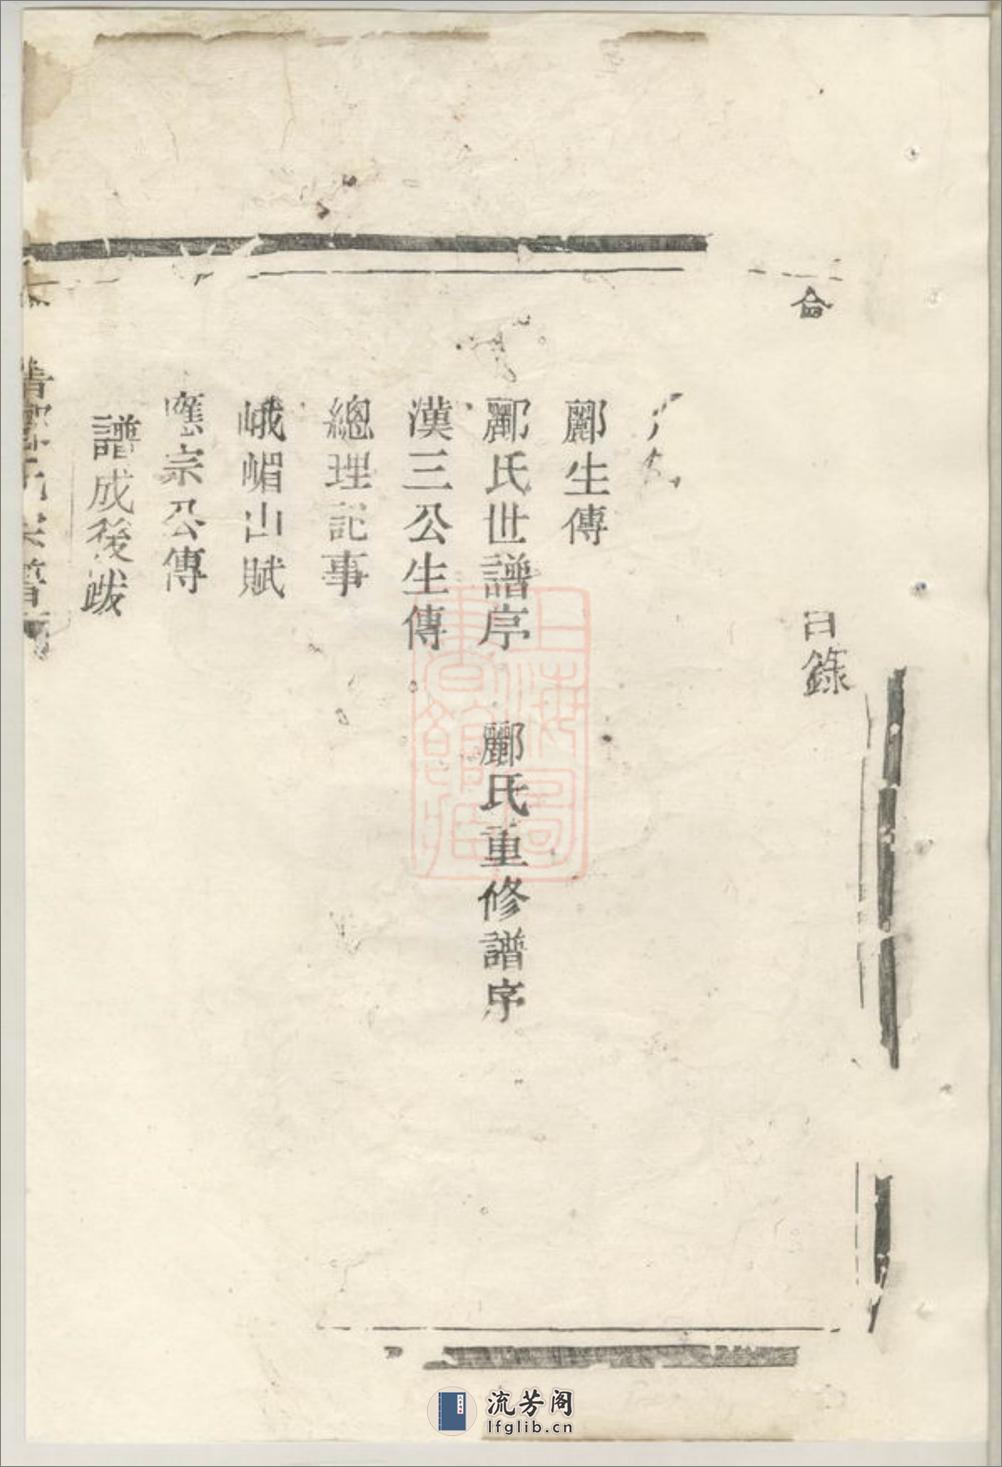 目錄
酈生傳
酈氏世譜序　酈氏重修譜序
漢三公生傳
總理記事
峨嵋山賦
應宗公傳
譜成後跋
上海圖書館藏
流芳阁
lfglib.cn